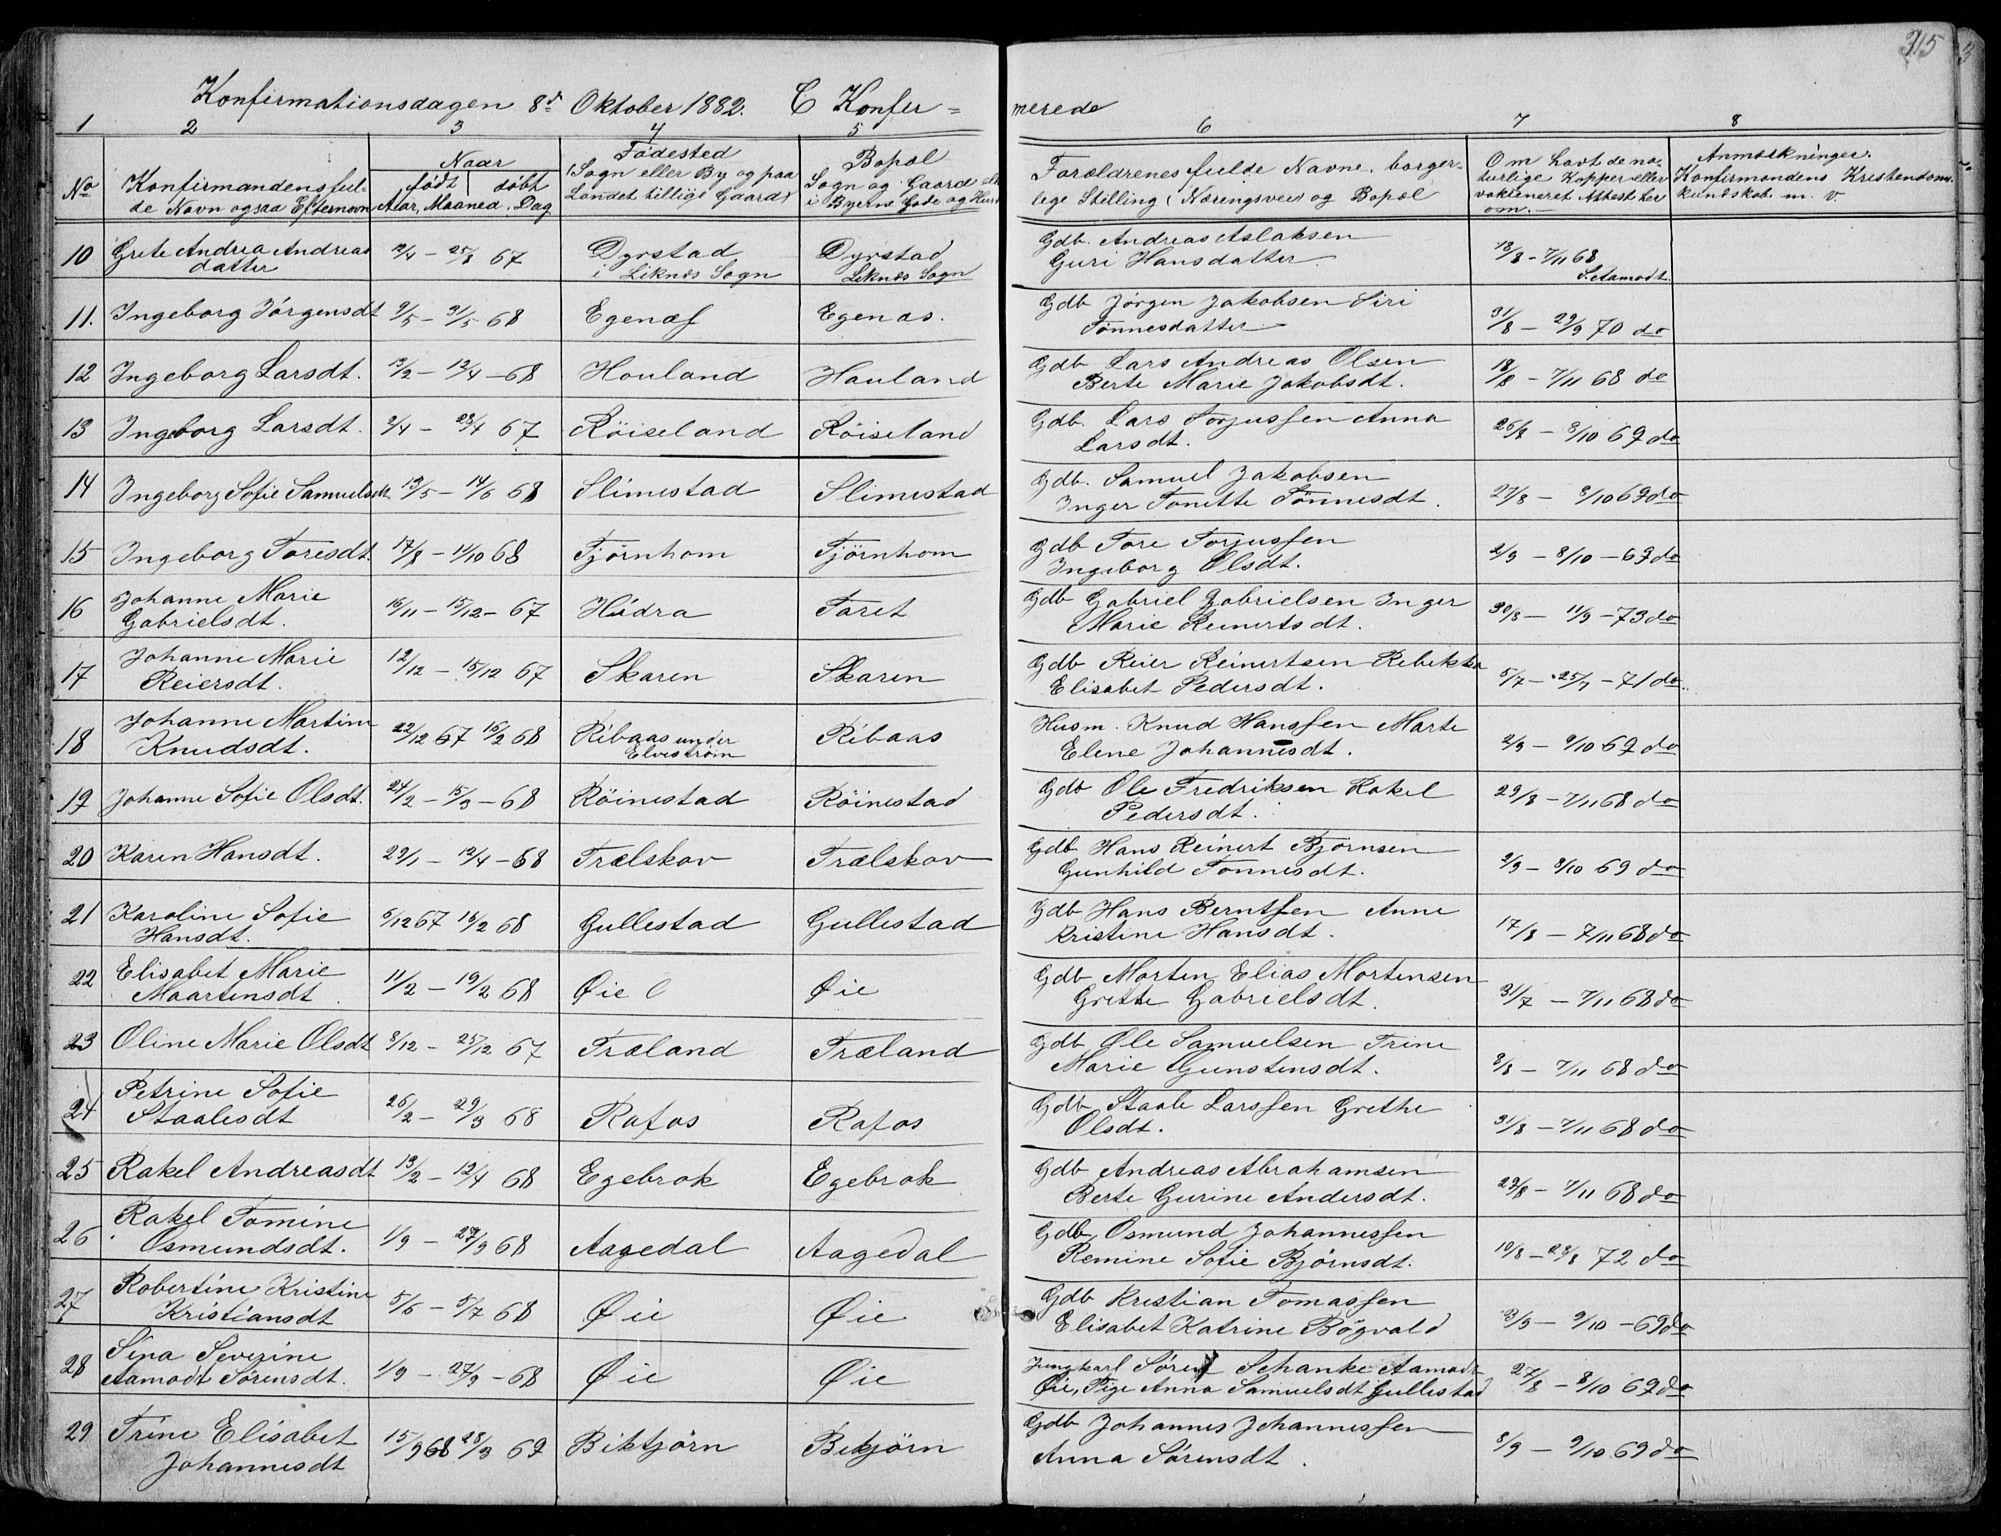 315
Konfirmationsdagen 8d Oktober 1882. C Konfir=
merede
1 2 3 4 5 6 7 8
No
Konfirmandens ful-
de Navn ogsaa Efternavn
Naar
født | døbt
Aar, Maaned, Dag
Fødested
(Sogn eller By og paa
Landet tillige Gaard)
Bopæl
Sogn og Gaard
i Byerne Gade og Hus
Forældrenes fulde Navne, borger-
lige Stilling (Næringsvei) og Bopæl
Om havt de na-
turlige Kopper eller
vaksineret Attest her
om.
Anmærkninger.
Konfirmandens Kristendoms-
kundskab. m. v.
10 Grete Andrea Andreas 12/4 – 25/8 67 Dyrstad Dyrstad Gdb. Andreas Aslaksen 13/8 – 7/11 68
datter i Liknes Sogn Liknes Sogn Guri Hansdatter S. Aamodt.
11. Ingeborg Jörgensdt 9/5 – 31/5 68 Egenæs Egenas. Gdb Jörgen Jakobsen Siri
Tönnesdatter 31/8 – 29/9 70 do
12 Ingeborg Larsdt. 13/2 – 13/4 – 68 Houland Hauland Gdb Lars Andreas Olsen 18/8 – 7/11 68 do
Berte Marie Jakobsdt.
13 Ingeborg Larsdt. 2/4 – 28/4 67 Röiseland Röiseland Gdb. Lars Torjussen Anna 26/8 – 8/10 69 do
Larsdt.
14 Ingeborg Sofie Samuelsdt 13/5 – 14/6 68 Slimestad Slimestad Gdb. Samuel Jakobsen
Inger Tonette Tönnesdt. 27/8 – 8/10 69 do
15 Ingeborg Toresdt. 17/8 – 11/10 68 Tjörnhom Tjörnhom Gdb Tore Torjussen 2/9 – 8/10 – 69 do
Ingeborg Olsdt.
16 Johanne Marie 16/11 – 15/12 – 67 Hidra Taret Gdb Gabriel Gabrielsen Inger
Gabrielsdt. Marie Reinertsdt. 30/8 – 11/9 – 73 do
17 Johanne Marie 12/12 – 15/12 67 Skaren Skaren Gdb Reier Reinertsen Rebekka
Reiersdt. Elisabet Pedersdt. 5/7 – 25/7 – 71 do
18 Johanne Martine 22/12 67 16/2 68 Ribaas under Ribaas Husm. Knud Hanssen Marte
Knudsdt. Elvestrøm Elene Johannesdt. 2/9 – 9/10 69 do
19 Johanne Sofie Olsdt. 24/2 – 15/3 – 68 Röinestad Röinestad Gdb Ole Fredriksen Rakel 29/8 – 7/11 68 do
Pedersdt.
20 Karen Hansdt. 29/1 – 12/4 – 68 Trælskov Trælskov Gdb Hans Reinert Bjørnsen
Gunhild Tonnesdt. 2/9 – 8/10 69 do
21 Karoline Sofie 6/12 67 16/2 68 Gullestad Gullestad Gdb Hans Berntsen Anne
Hansdt. Kristine Hansdt. 17/8 – 7/11 68 do
22 Elisabet Marie 11/2 – 19/2 68 Øie Øie Gdb Morten Elias Mortensen
Maartensdt Grette Gabrielsdt. 31/7 – 7/11 68 do
23 Oline Marie Olsdt 8/12 – 25/12 67 Træland Træland Gdb Ole Samuelsen Trine
Marie Gunstensdt. 8/8 – 7/11 68 do
24 Petrine Sofie 26/2 – 29/3 68 Rafos Rafos Gdb Staale Larssen Grethe
Staalesdt Olsdt. 31/8 – 7/11 68 do
25 Rakel Andreasdt 13/2 – 12/4 68 Egebrok Egebrok Gdb Andreas Abrahamsen
Berte Gurine Andersdt. 29/8 – 7/11 68 do
26 Rakel Tomine 1/9 – 27/9 68 Aagedal Aagedal Gdb Osmund Johannessen
Osmundsdt. Remine Sofie Bjørnsdt. 10/8 – 28/8 72 do
27 Robertine Kristine 5/6 – 5/7 68 Øie Øie Gdb Kristian Tomassen
Kristiansdt Elisabet Katrine Bögvald 3/9 – 9/10 – 69 do
28 Sina Severine 1/9 – 27/9 – 68 Øie Øie Ungkarl Sören Schanke Aamodt
Aamodt Sörensdt. Øie, Pige Anna Samuelsdt Gullestad 27/8 – 8/10 69 do
29 Trine Elisabet 15/9 68 28/3 69 Biktjörn Bikjörn Gdb Johannes Johannessen
Johannesdt Anna Sörensdt. 8/9 – 9/10 69 do